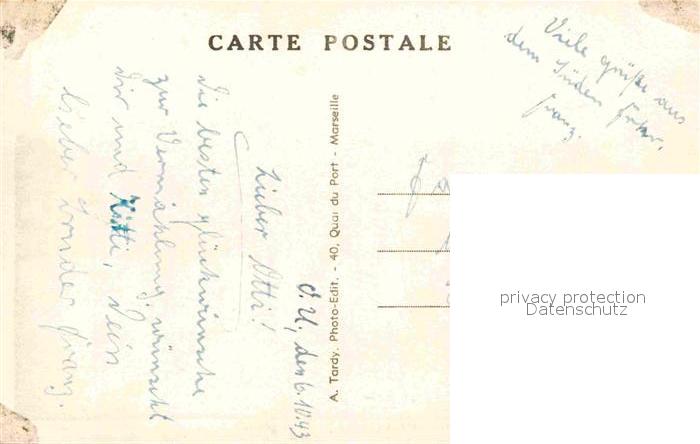 CARTE POSTALE
Viele Grüße aus
dem Süden
Franz.
O.U., den 6.10.43
Lieber Otti!
Die besten Glückwünsche
zur Vermählung, wünscht
Dir und Kitti, Dein
lieber Bruder Franz.
A. Tardy, Photo-Edit. - 40, Quai du Port - Marseille
privacy protection
Datenschutz